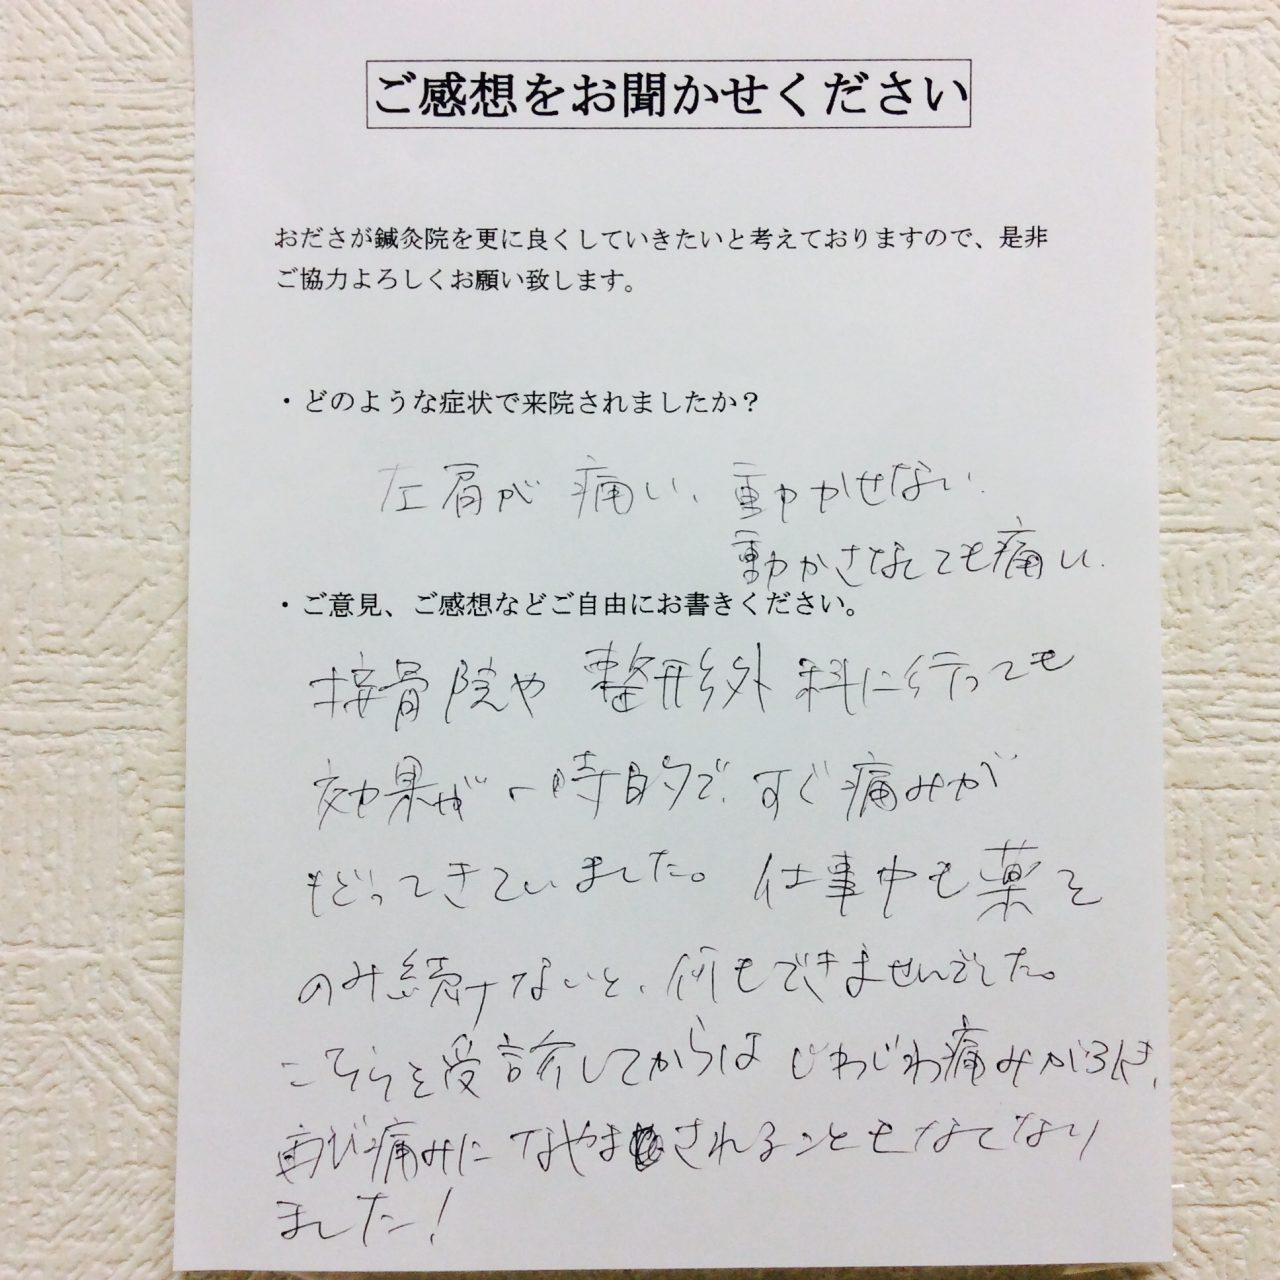 ご感想をお聞かせください
おださが鍼灸院を更に良くしていきたいと考えておりますので、是非
ご協力よろしくお願い致します。
・どのような症状で来院されましたか？
左肩が痛い、動かせない.
動かさなくても痛い.
・ご意見、ご感想などご自由にお書きください。
接骨院や整形外科に行っても
効果が一時的で、すぐ痛みが
もどってきていました。仕事中も薬を
のみ続けないと、何もできませんでした。
こちらを受診してからはじわじわ痛みがひき、
再び痛みになやまされることもなくなり
ました!